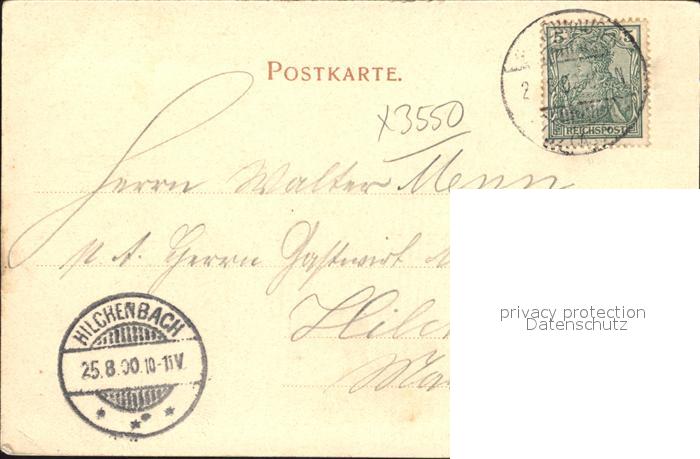 POSTKARTE.
5 5
REICHSPOST
x3550
Herrn Walter Menn
p. A. Herrn Gastwirt
Hilch
privacy protection
Datenschutz
HILCHENBACH
25.8.00.10-11V.